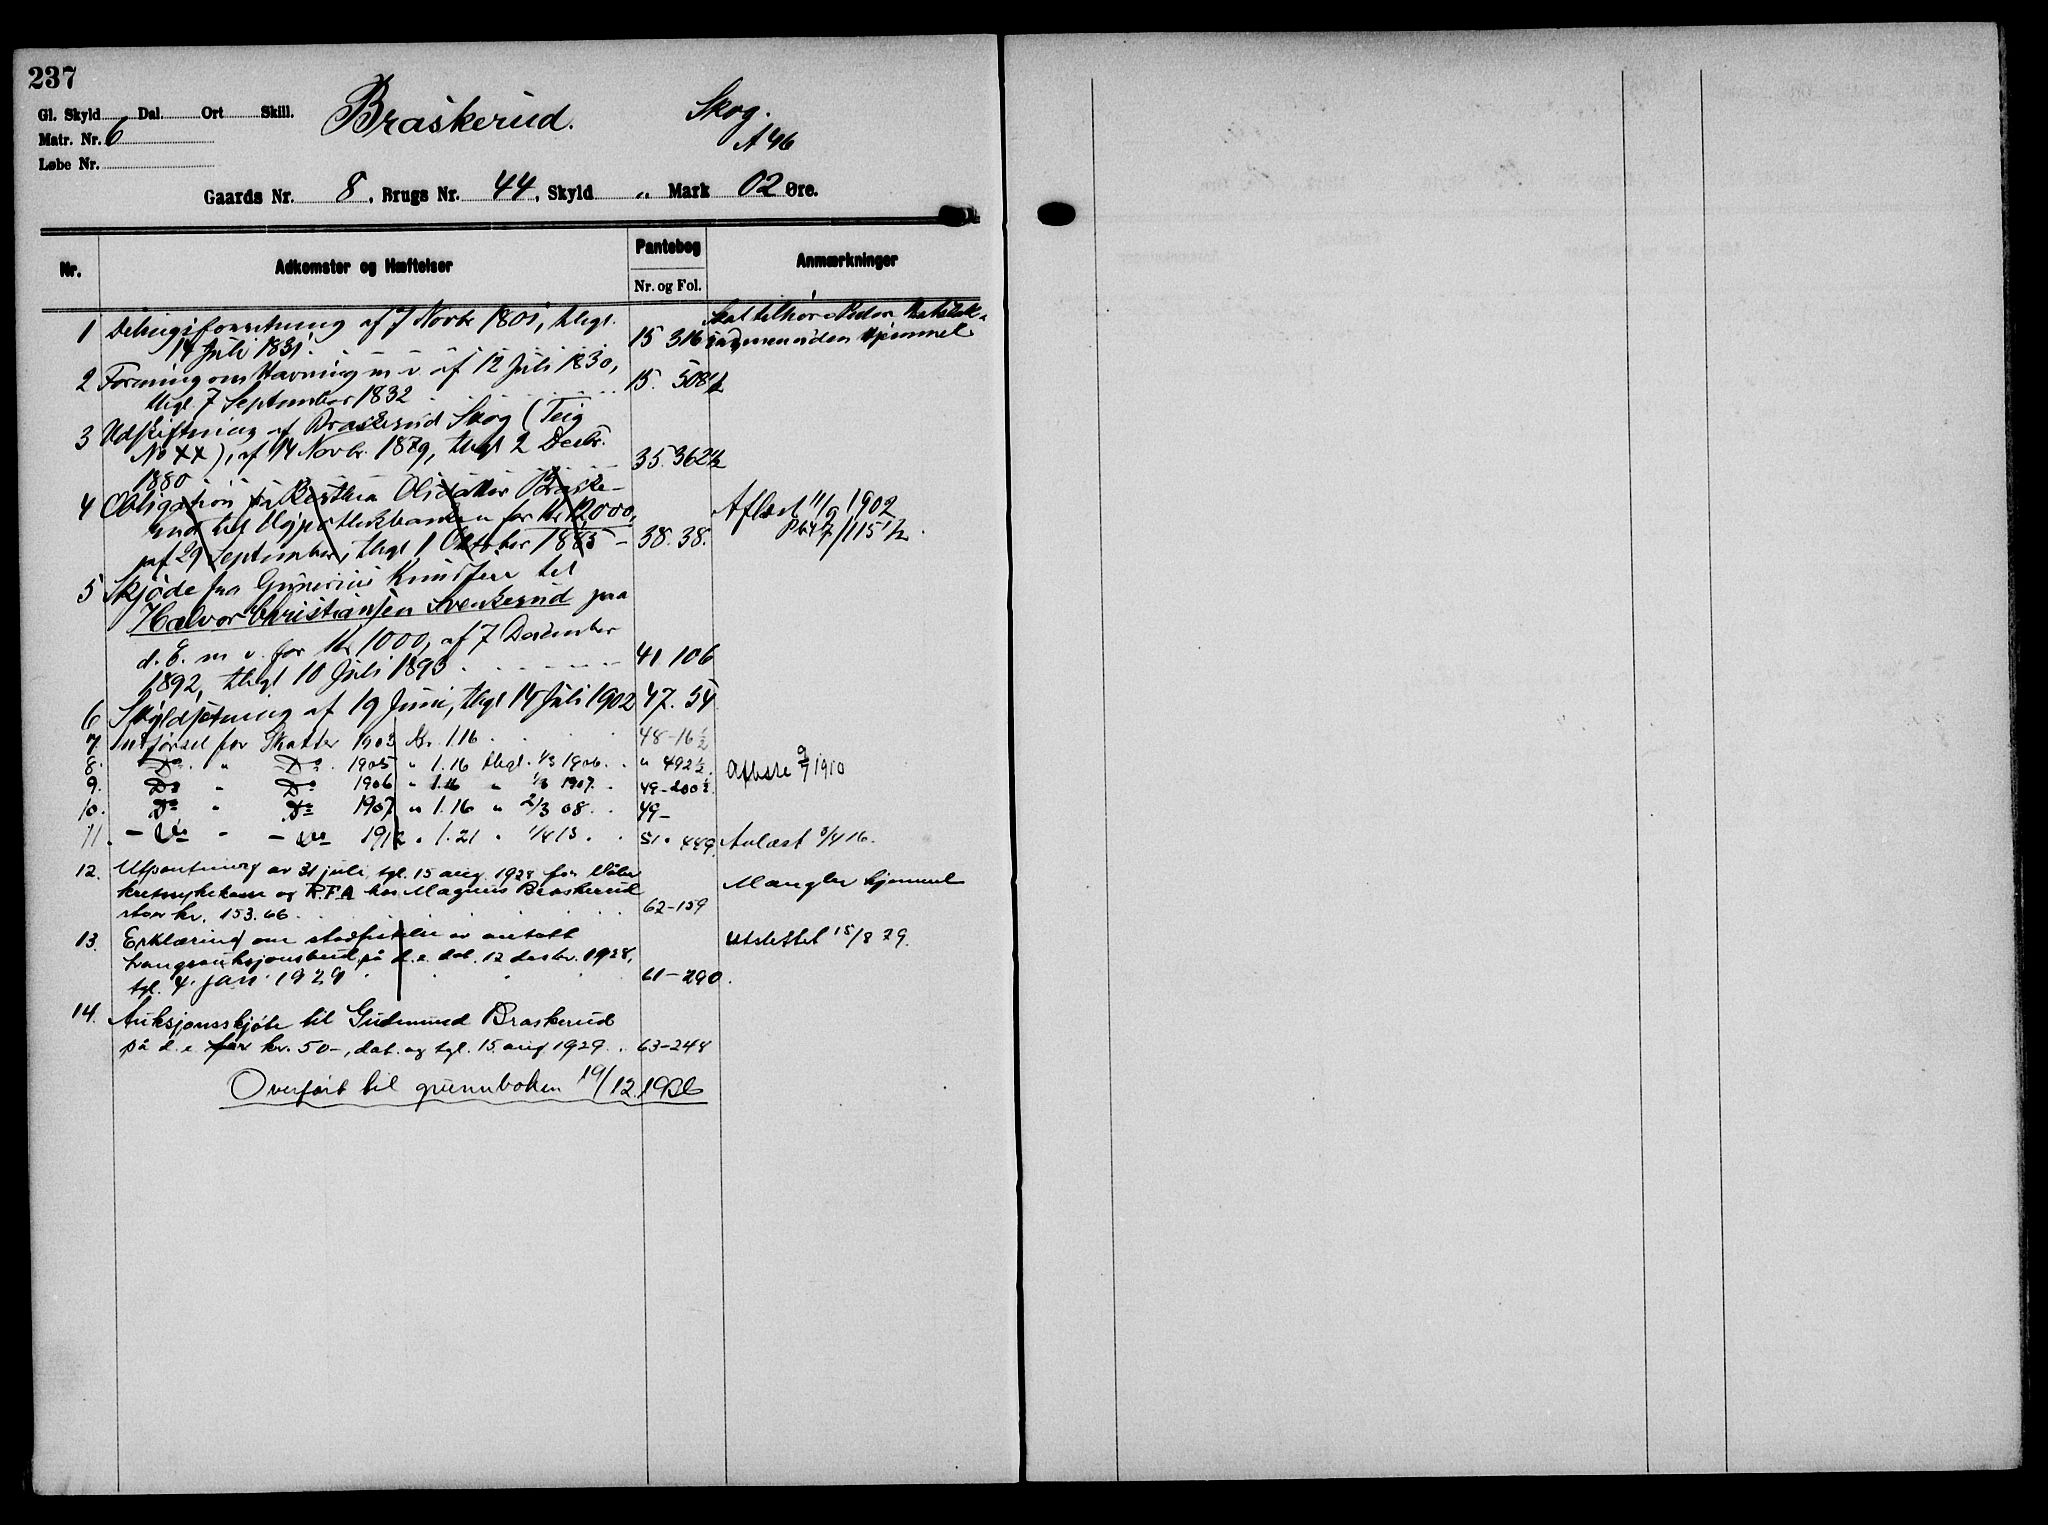 237
Gl. Skyld Dal. Ort Skill.
Matr. Nr. 6
Løbe Nr.
Braskerud. Skog.
A 46
Gaards Nr. 8, Brugs Nr. 44, Skyld " Mark 02 Øre.
Nr. Adkomster og Hæftelser Pantebog Anmærkninger
Nr. og Fol.
1 Delingsforretning af 7 Novbr 1801, thlgl.
14 Juli 1831. 15 316
Skal tilhøre Peder
uden Hjemmel
2 Forening om Havning m v af 12 Juli 1830,
thlgl. 7 September 1832 15. 508½
3 Udskiftning af Braskerud Skog (Teig
No XX), af 14 Novbr. 1879, thlgl 2 Decbr.
1880 35. 362½
4 Obligation fra Berthea Olsdatter Braske-
rud til Hypothekbanken for Kr 12,000,
af 29 September, thlgl 1 Oktober 1885 38. 38.
Aflæst 11/9 1902
5 Skjøde fra Gunerius Knudsen til
Halvor Christiansen Svenkerud paa
d. E. m v. for Kr 1000, af 7 December
1892, thlgl 10 Juli 1893 41 106
6 Skyldsetning af 19 Juni, thlgl 14 Juli 1902 47. 54
7. Utførsel for Skatter 1903 Kr. 1.16 48-16½
8. Do. " Do. 1905 " 1.16 thlgl. 1/3 1906. " 492½ Afløste 9/7 1910
9. Do " Do 1906 " 1.16 " 1/3 1907. 49-200½
10. Do " Do 1907 " 1.16 " 2/3 08. 49-
11. - Do " - Do 1912 " 1.21 " 1/4 13. 51. 449. Avlæst 3/4 16.
12. Utpantning av 31 juli, tgl. 15 aug. 1928 for Våler
kretssykekasse og R.F.A. hos Magnus Braskerud
stor kr. 153.66 62-159 Mangler hjemmel
13. Erklæring om stadfestelse av antatt
tvangsauksjonsbud på d.e. dat. 12 desbr. 1928,
tgl. 4. jan. 1929 61-290. Utslettet 15/8 29.
14. Auksjonsskjøte til Gudmund Braskerud
på d.e. for kr. 50-, dat. og tgl. 15. aug 1929. 63-248
Overført til grunnboken 19/12.1936